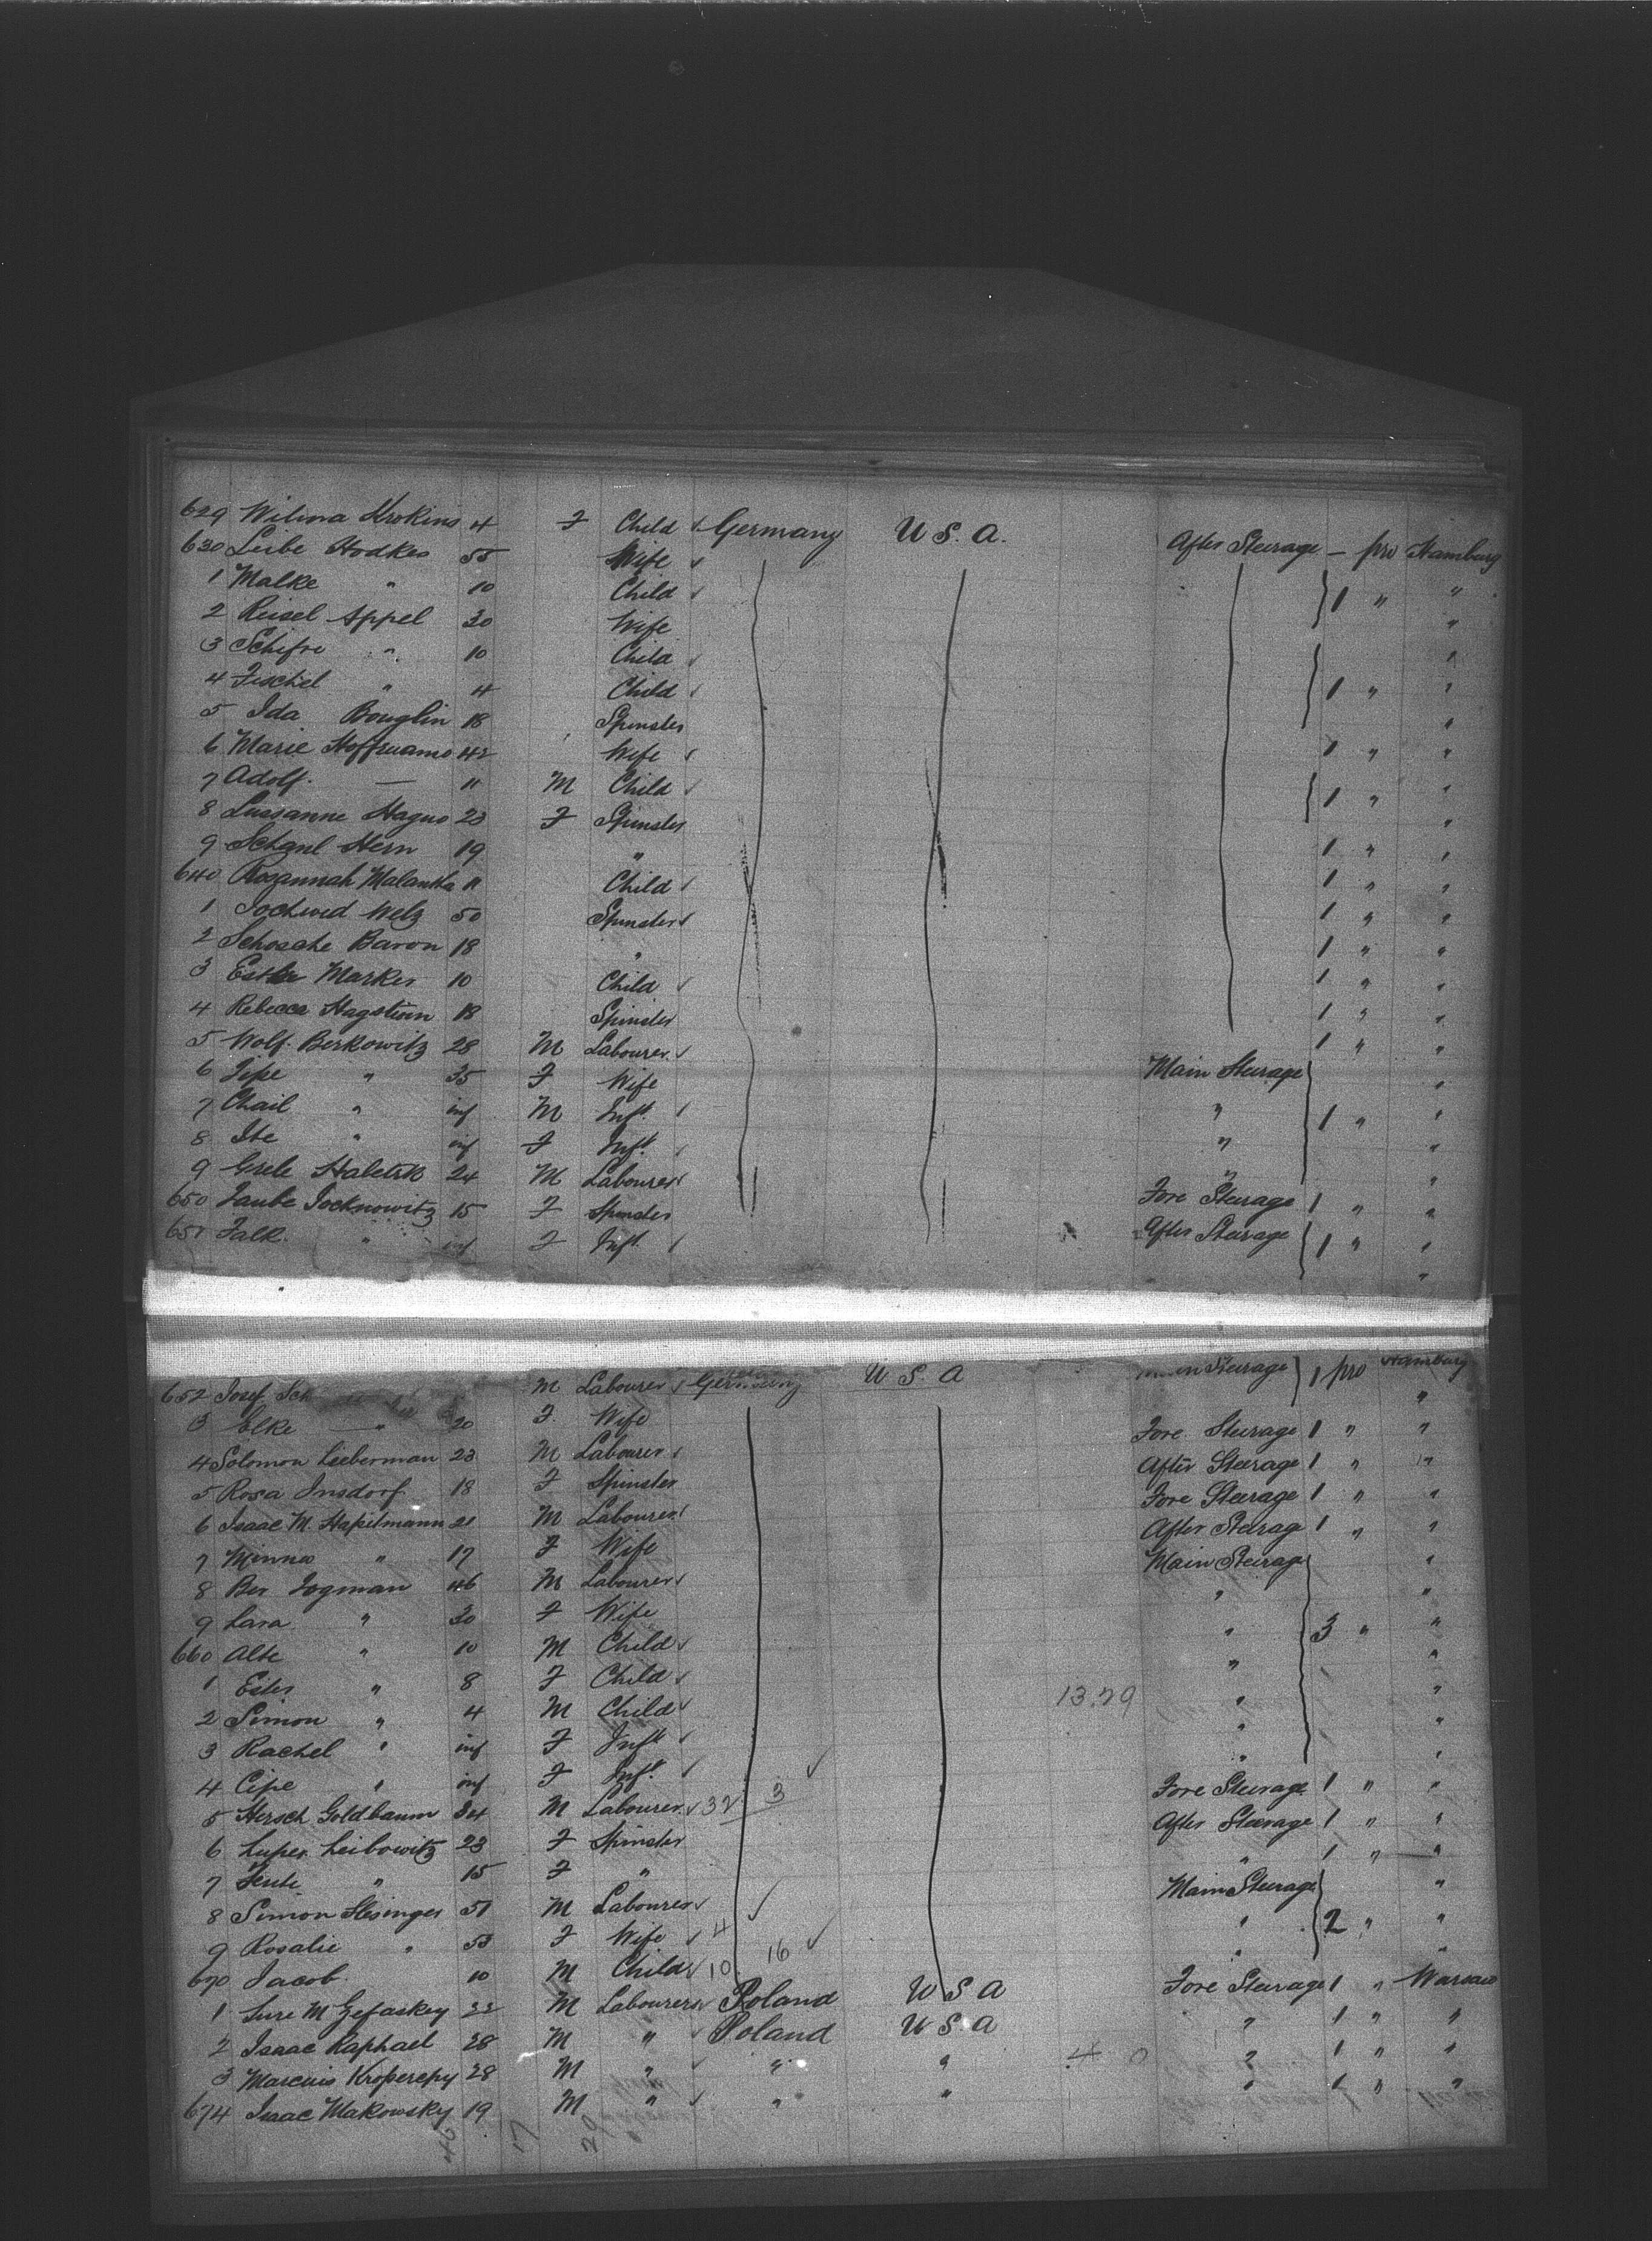 629 Wilma Krokins 4 F Child Germany U.S.A. After Steerage – pro Hamburg
630 Leibe Hodkes 55 Wife "
1 Malke " 10 Child } 1 " "
2 Reisel Appel 30 Wife "
3 Schifre " 10 Child "
4 Fischel " 4 Child } 1 " "
5 Ida Bouglin 18 Spinster 1 " "
6 Marie Hoffmann 42 Wife "
7 Adolf. — 11 M Child } 1 " "
8 Lussanne Hagus 23 F Spinster 1 " "
9 Schanl Hern 19 " 1 " "
640 Rosannah Malanka 11 Child 1 " "
1 Jochwed Welz 50 Spinster 1 " "
2 Schosche Baron 18 " 1 " "
3 Esther Marker 10 Child 1 " "
4 Rebecca Hagstein 18 Spinster 1 " "
5 Wolf. Berkowitz 28 M Labourer Main Steerage "
6 Zipe " 35 F Wife " "
7 Chail " inf M Inft. " } 1 " "
8 Ite " inf F Inft. " "
9 Grele Haletsk 24 M Labourer Fore Steerage 1 " "
650 Taube Jocknowitz 15 F Spinster After Steerage } 1 " "
651 Falk. " inf F Inft. "
652 Josef Sch M Labourer Germany U.S.A Main Steerage } 1 pro Hamburg
3 Elke — " 20 F. Wife "
4 Solomon Lieberman 23 M Labourer Fore Steerage 1 " "
5 Rosa Insdorf 18 F Spinster After Steerage 1 " "
6 Isaac M. Hapelmann 21 M Labourer Fore Steerage 1 " "
7 Minna " 17 F Wife After Steerage 1 " "
8 Ber Jogman 46 M Labourer Main Steerage "
9 Lara " 30 F Wife " "
660 Alte " 10 M Child " } 3 " "
1 Ester " 8 F Child " "
2 Simon " 4 M Child 13.79 " "
3 Rachel " inf F Inft " "
4 Cipe " inf F Inft. " "
5 Hersch Goldbaum 34 M Labourer 32 3 Fore Steerage 1 " "
6 Luper Leibowitz 23 F Spinster After Steerage 1 " "
7 Hente " 15 F " " 1 " "
8 Simon Slesinger 51 M Labourer Main Steerage "
9 Rosalie " 53 F Wife 4 " } 2 " "
670 Jacob 10 M Child 10 16 " "
1 Sure M Zefaskey 22 M Labourer Poland U S A Fore Steerage 1 " Warsaw
2 Isaac Raphael 28 M " Poland U.S.A " 1 " "
3 Marcuis Kroperepy 28 M " " " 4 0 " 1 " "
674 Isaac Makowsky 19 M " " " " 1 " "
46 17 29